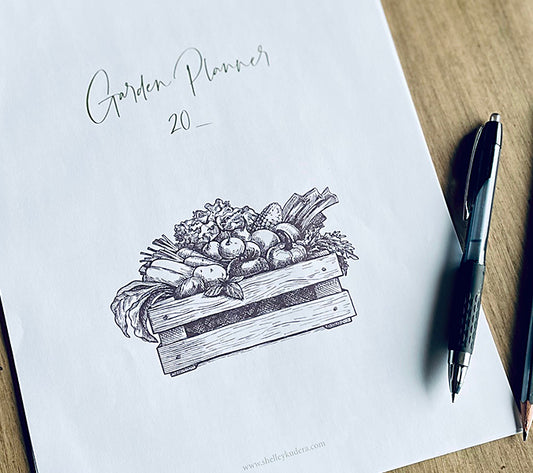 Garden Planner
20_
www.shelleykudera.com